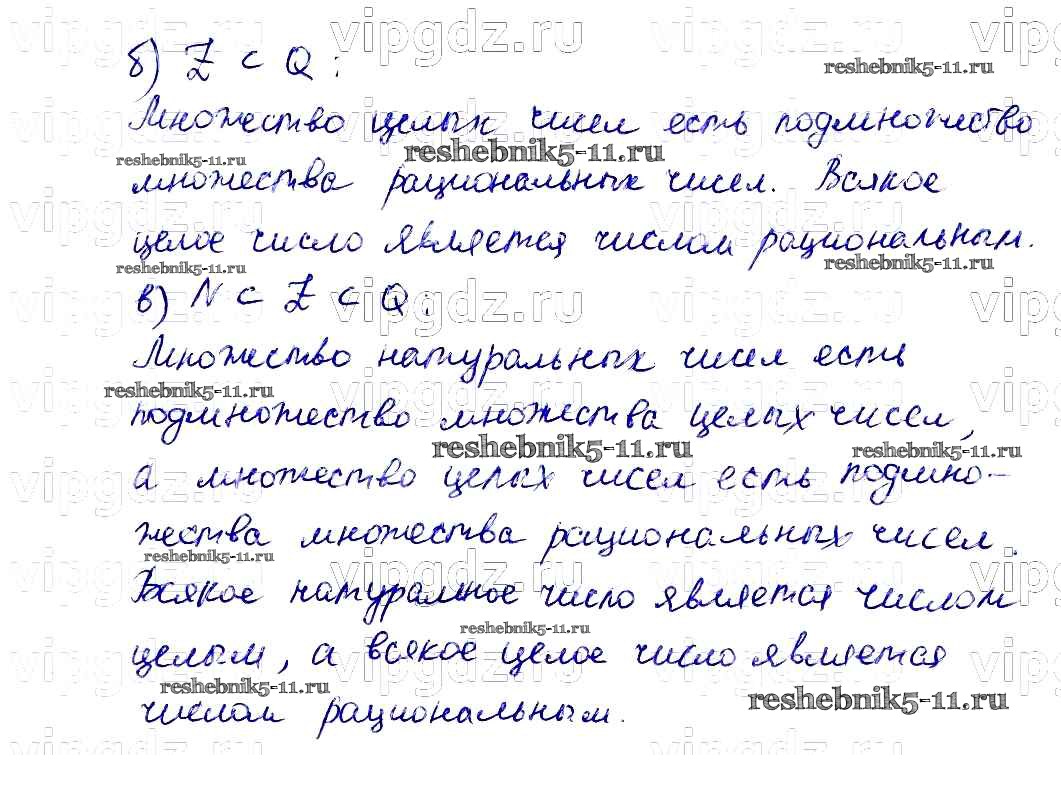 б) Z ⊂ Q:
Множество целых чисел есть подмножество
множества рациональных чисел. Всякое
целое число является числом рациональным.
в) N ⊂ Z ⊂ Q.
Множество натуральных чисел есть
подмножество множества целых чисел,
а множество целых чисел есть подмно-
жества множества рациональных чисел.
Всякое натуральное число является числом
целым, а всякое целое число является
числом рациональным.
vipgdz.ru
reshebnik5-11.ru